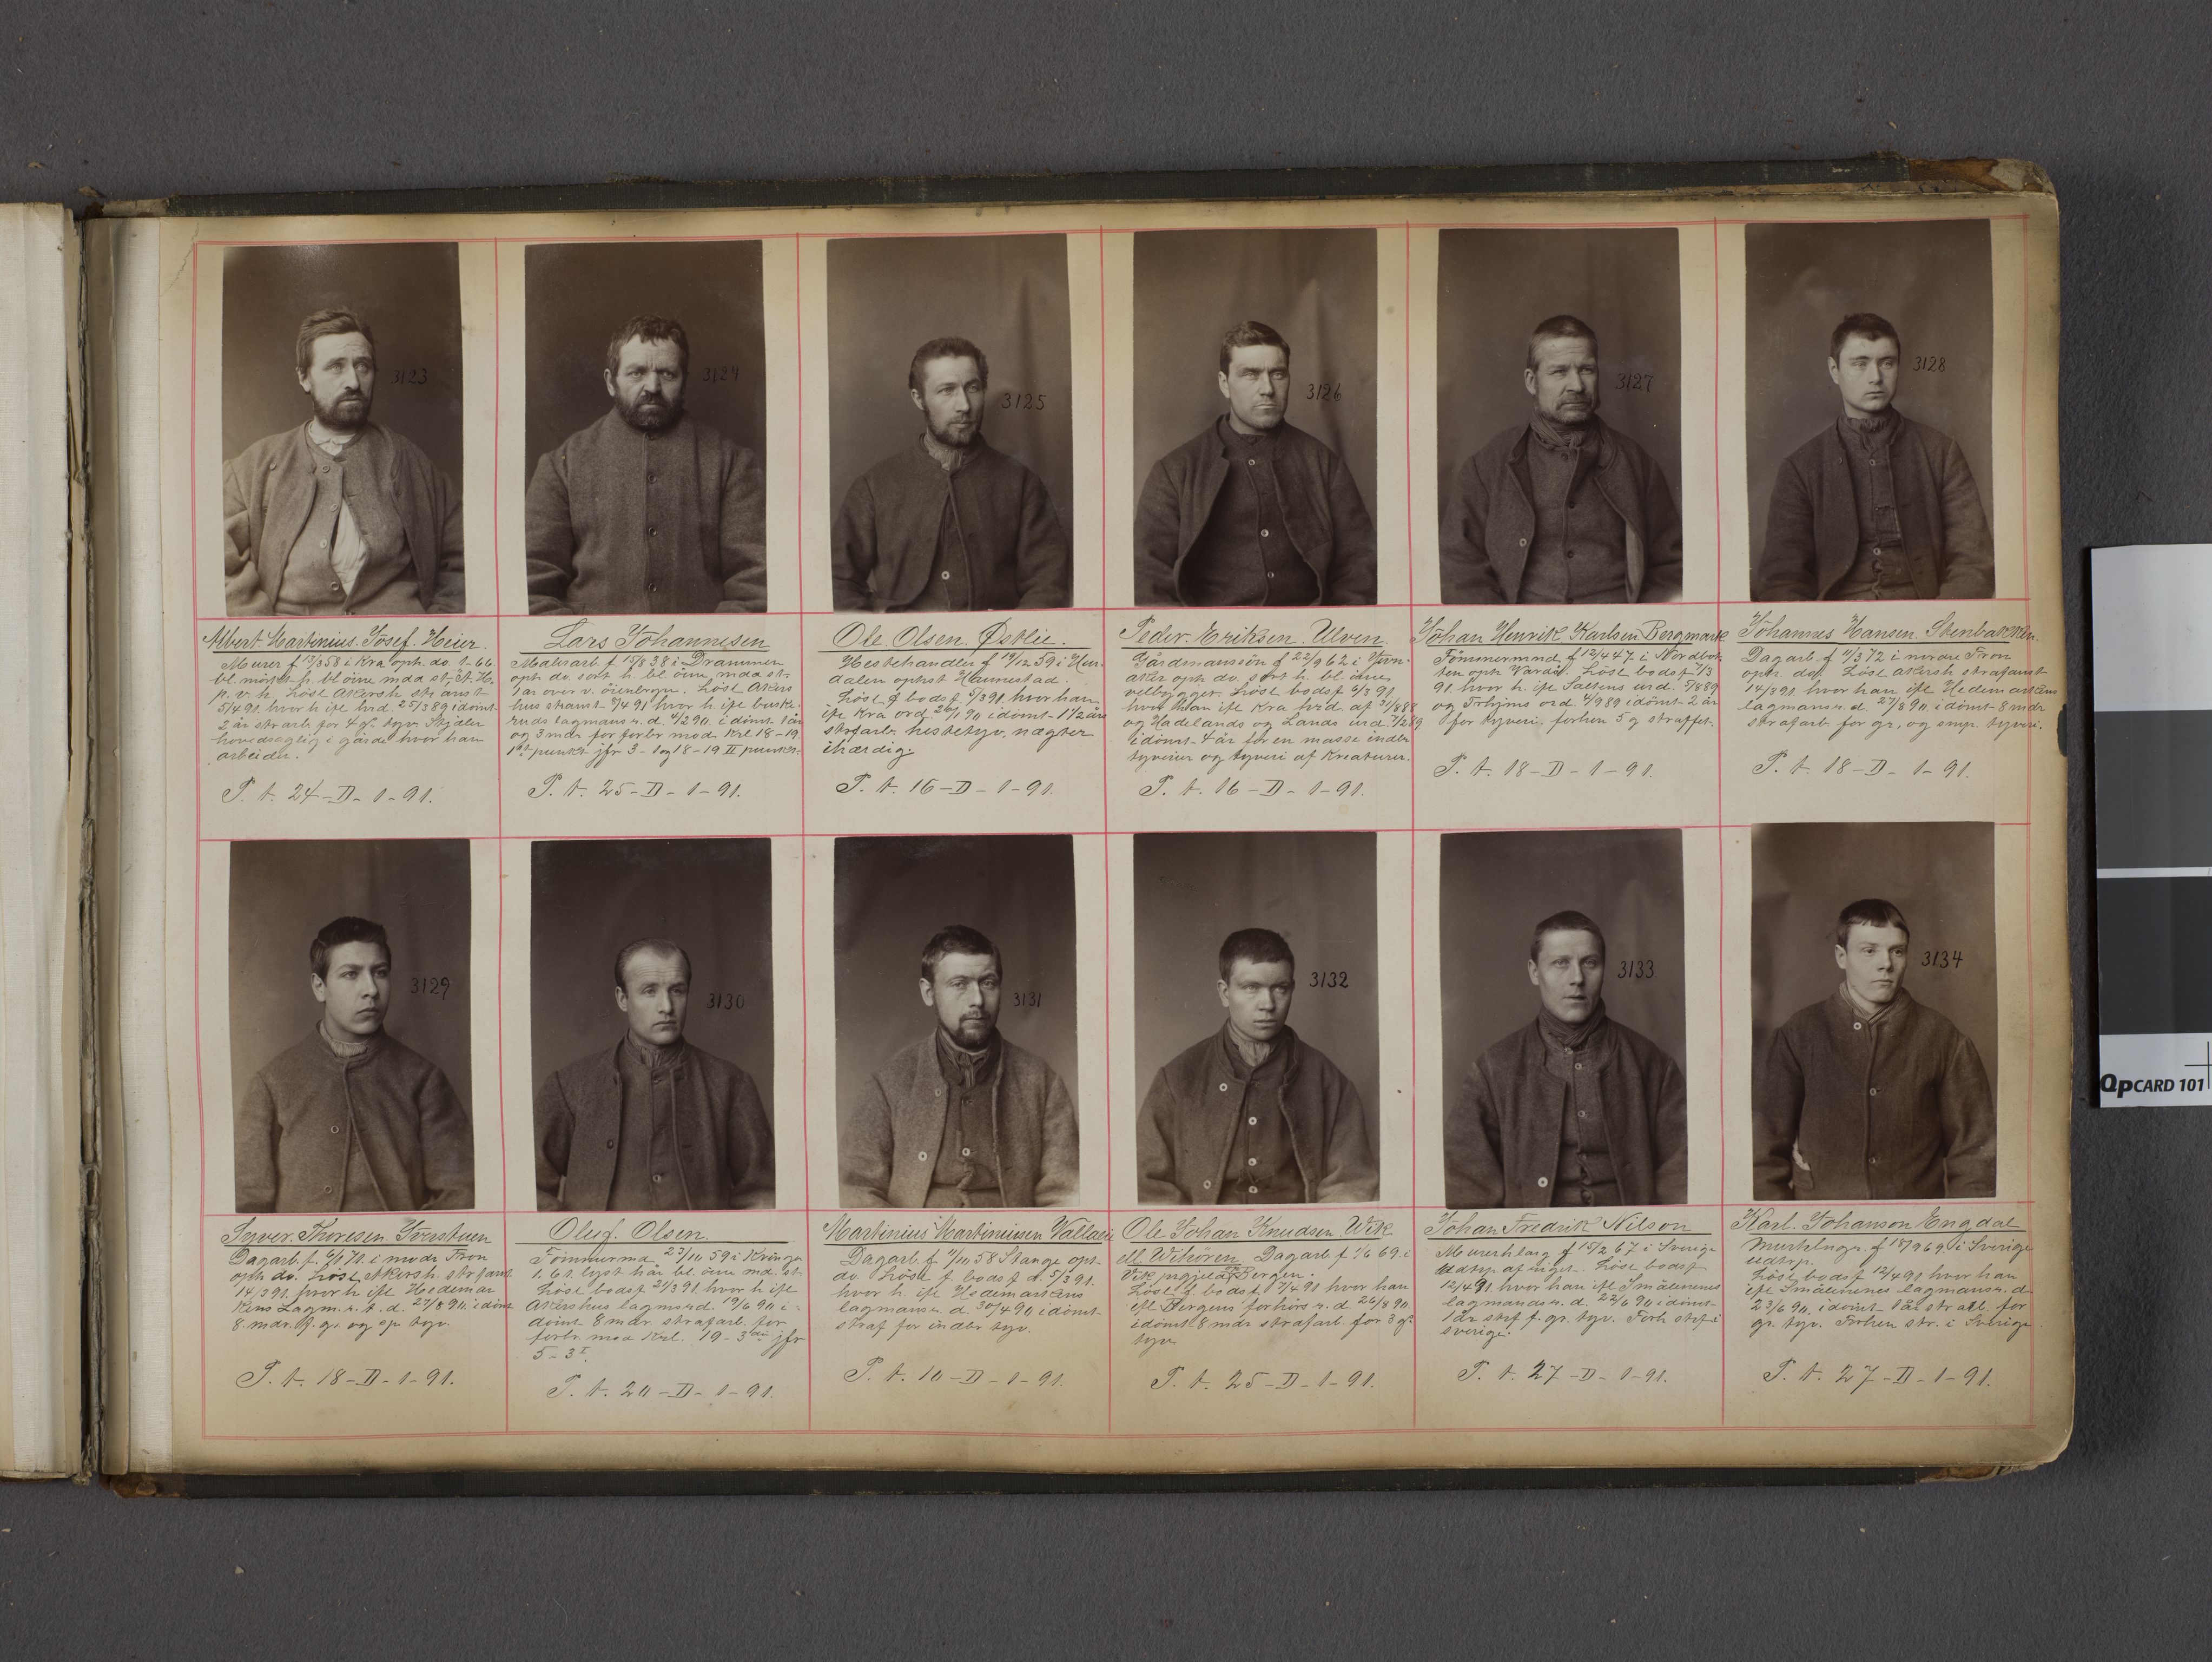 3123
3124
3125
3126
3127
3128
Albert Martinius Josef Heier.
Murer f 13/3 58 i Kra oph. do. 1-66.
bl. mörkt h. bl öine mda st. st. Ho.
p. v. h. Löst Akersh str anst
5/4 91. hvor h ifl hrd. 25/3 89 idömt
2 år strarb for 4 g. tyv. Stjæler
hovedsaglig i gårde hvor han
arbeider.
P. t. 24-D-1-91.
Lars Johannesen
Malerarb f 15/8 38 i Drammen
oph do. sort h. bl öine mda st-
1 ar over v. öienbryn. Löst Akers
hus stranst 9/4 91 hvor h. ifl buske-
ruds lagmans r. d. 4/2 90. idömt 1 år
og 3 mdr for forbr mod Krl 18-19
1st punkt jfr 3- og 18-19 II punkt-
P. t. 25-D-1-91.
Ole Olsen Østlie.
Hestehandler f 19/12 59 i
dalen ophst
Löst f bodsf 5/3 91. hvor han
ifl Kra ord 26/1 90 idömt 1 1/2 års
strafarb. hestetyv, nægter
ihærdig.
P. t. 16-D-1-91.
Peder Eriksen Ulven.
Gårdmanssön f 22/9 62 i
aker oph do. sort h. bl. öine
velbygget. Löst bodsf 6/3 91.
hvor han ifl Kra hrd af 31/8 88
og Hadelands og Lands ord 7/2 89
idömt 4 år for en masse indbr
tyverier og tyveri af Kreaturer.
P. t. 16-D-1-91.
Johan Henrik Karlsen Bergmark
Tömmermnd f 12/4 47 i Nordbot
ten oph Vardö. Löst bodsf 7/3
91. hvor h. ifl Saltens ord. 5/8 89
og Trhjms ord 4/9 89 idömt 2 år
for tyveri, forhen 5 g straffet.
P. t. 18-D-1-91.
Johannes Hansen Stenbakken.
Dagarb. f 11/3 72 i nerdre Fron
oph. do. Löst Akersh strafanst
14/3 91. hvor han ifl Hedemarkens
lagmans r. d. 27/8 90. idömt 8 mdr
strafarb for gr, og smp. tyveri.
P. t. 18-D-1-91.
3129
3130
3131
3132
3133
3134
Syver Thoresen
Dagarb. f. 6/1 71. i nodr Fron
oph do. Löst Akersh. strfanst
14/3 91. hvor h ifl Hedemar
kens Lagm. r. t. d. 27/8 90. idömt
8. mdr. f. gr. og sp. tyv.
P. t. 18-D-1-91.
Oluf Olsen.
Tömmerma 23/10 59 i Kringe
1. 61. lyst hår bl. öine md. st
Löst bodsf 21/3 91. hvor h ifl
Akershus lagmsrd. 19/6 90 i-
dömt 8 mdr. strafarb. for
forbr mod Krl. 19-3die jfr
5-3 I.
P. t. 20-D-1-91.
Martinius Martiniusen
Dagarb. f 11/10 58 Stange opt-
do. Löst f bodsf d. 5/3 91.
hvor h. ifl Hedemarkens
lagmans r. d. 30/4 90 idömt
straf for indbr tyv.
P. t. 10-D-1-91.
Ole Johan Knudsen Wik
ell. Wikören Dagarb. f 1/6 69. i
Vik prgjeld Bergen.
Löst f. bodsf 17/4 91 hvor han
ifl Bergens forhörs r. d 26/8 90
idömt 8 mdr strafarb. for 3 g
tyv.
P. t. 25-D-1-91.
Johan Fredrik Nilson
Murerhlang f 15/2 67 i Sverige
udtyp. af riget. Löst bodsf
12/4 91. hvor han ifl Smålenenes
lagmands r. d. 22/6 90 idömt
1 år strf f. gr. tyv. Forh strf i
Sverige.
P. t. 27-D-1-91.
Karl Johanson Engdal
Murhlngr. f 18/9 69 i Sverige
udtyp.
Löst bodsf 12/4 91. hvor han
ifl Smålenenes lagmans r. d.
23/6 90. idömt 1 år strarb. for
gr. tyv. Forhen str. i Sverige.
P. t. 27-D-1-91.
QpCARD 101